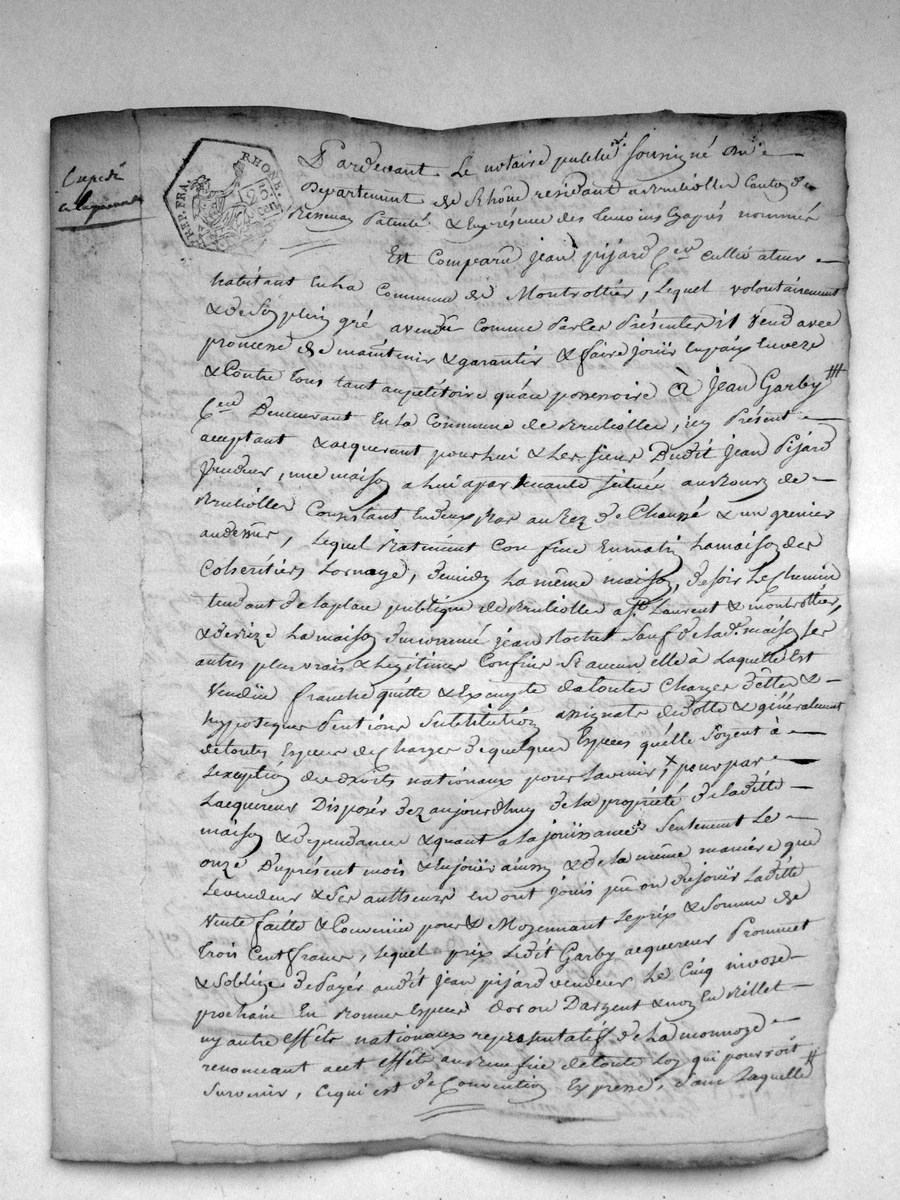 Expédié
REP. FRA.
RHONE.
Pardevant Le notaire public soussigné du
Departement de Rhône residant a Brullioller Canton de
Bessenay Patenté & En présence des temoins Cy après nommés
Est Comparu jean pijard Cen cultivateur
habitant En La Commune de Montrottier, Lequel volontairement
& de Son plein gré a vendu comme Par Les Présentes il vend avec
promesse de maintenir & garantir & faire jouir En paix Envers
& Contre tous tant au pétitoire qu'au possessoire à Jean Garby
Cen Demeurant En La Commune de Brulliolle, icy Présent
acceptant & acquerant pour Lui & Les Siens Dudit jean Pijard
vendeur, une maison a Lui apartenante Située au Bourg de
Brullioller Consistant En deux Bas au Rez de Chaussé & un grenier
au dessus, Lequel Batiment Confine En matin La maison des
Coheritiers Lornage, de midy La même maison, de soir Le Chemin
tendant de La place publique de Brulliolle a St Laurent & montrottier,
& de Bize La maison du nommé jean Rochet Sauf de Lade maison Ses
autres plus vrais & Legitimes Confins Si aucun elle à Laquelle Est
Vendüe franche quitte & Exempte de toutes Charges dettes &
hypoteques Pentions Substitution assignats de dotte & généralement
de toutes Especes de Charges de quelques Especes qu'elle Soyent à
L'exception des droits nationaux pour L'avenir, pour par
L'acquereur Disposer dez aujourdhuy de La propriété de Ladite
maison & dependance & quant a La joüissance Seulement Le
onze Du présent mois & En joüir ainsy & de La même manière que
Le vendeur & Ses autheurs en ont joui pû ou du joüir Ladite
Vente faitte & Convenüe pour & Moyennant Le prix & Somme de
trois Cent francs, Lequel prix Ledit Garby acquereur Prommet
& S'oblige de Payér audit jean pijard vendeur Le Cinq nivose
prochain En Bonnes Especes d'or ou D'argent & non En Billet
ny autre Effets nationaux representatif de La monnoye
renoncant a cet Effét au Benefice de toute Loy qui pourroit
Survenir, Ce qui est de Convention Expresse, Sans Laquelle